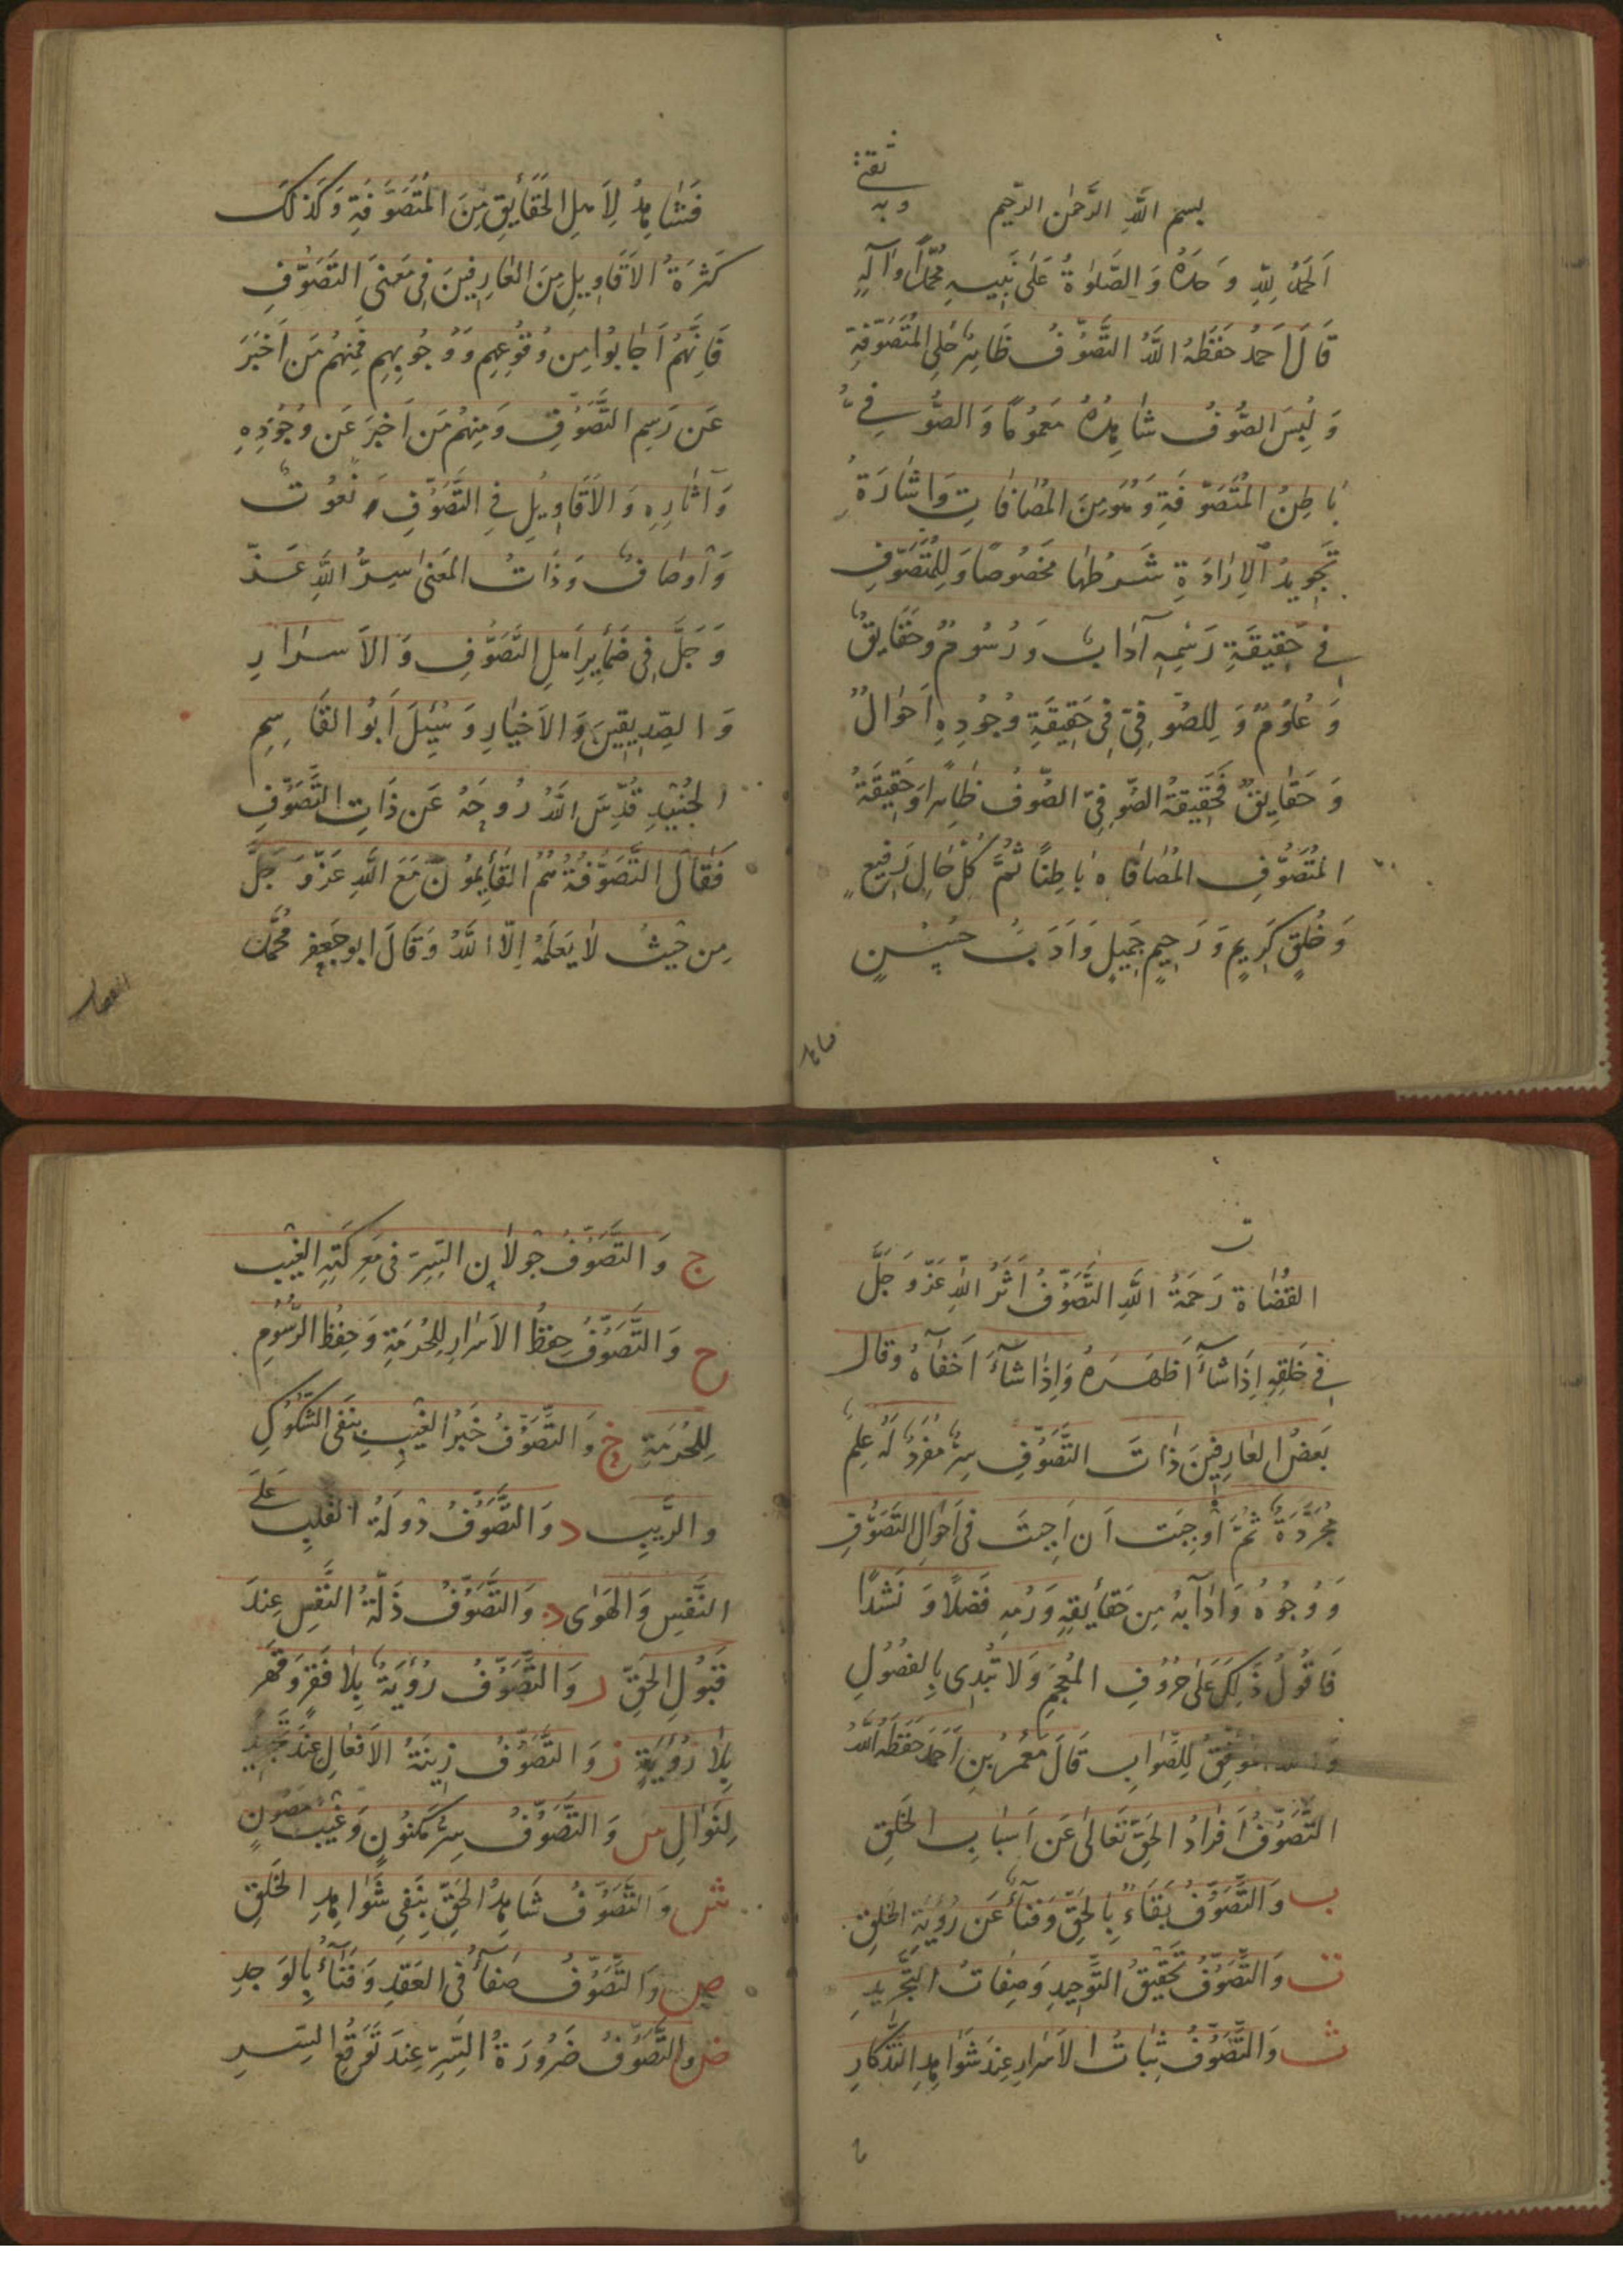 ثقتی
وبه
بسم اللَّهِ الرَّحمٰنِ الرَّحيم
اَلحَمدُ لِلّٰهِ وَحدَهُ وَالصَّلوٰةُ عَلىٰ نَبِيِّهِ مُحَمَّدٍ وَآلِهٖ
قَالَ اَحمدُ حَفَظَهُ اللَّهُ التَّصَوُّفُ ظَاهِرٌ حُلِي المُتَصَوِّفَةِ
وَلُبسُ الصُّوفِ شَاهِدُهُ مَعمُومًا وَالصُّوفِيُّ
بَاطِنُ المُتَصَوِّفَةِ وَهُوَ مِنَ المُصَافَاتِ وَاِشَارَةُ
تَجوِيدُ الاِرَادَةِ شَرطُها مَخصُوصًا وَلِلمُتَصَوِّفِ
فِي حَقِيقَةِ رَسمِهِ آدَابٌ وَرُسُومٌ وَحَقَايِقٌ
وَعُلُومٌ وَلِلصُّوفِيِّ فِي حَقِيقَةِ وُجُودِهِ اَحوَالٌ
وَحَقَايِقٌ فَحَقِيقَةُ الصُّوفِيِّ الصُّوفُ ظَاهِرًا وَحَقِيقَةُ
المُتَصَوِّفِ المُصَافَاه بَاطِنًا ثُمَّ كُلُّ حَالٍ رَفِيعٍ
وَخُلُقٍ كَرِيمٍ وَرَحِيمٍ جَمِيلٍ وَاَدَبٍ حَسَنٍ
فَشَاهِدُ لِاَهلِ الحَقَايِقِ مِنَ المُتَصَوِّفَةِ وَكَذلِكَ
كَثرَةُ الاَقَاوِيلِ مِنَ العَارِفِينَ فِي مَعنَى التَّصَوُّفِ
فَاِنَّهُم اَجَابُوا مِن وُقُوعِهِم وَوُجُوبِهِم فَمِنهُم مَن اَخبَرَ
عَن رَسمِ التَّصَوُّفِ وَمِنهُم مَن اَخبَرَ عَن وُجُودِهِ
وَآثَارِهِ وَالاَقَاوِيلُ فِي التَّصَوُّفِ نُعُوتٌ
وَاَوصَافٌ وَذَاتُ المَعنىٰ سِرُّ اللَّهِ عَزَّ
وَجَلَّ فِي ضَمَايِرِ اَهلِ التَّصَوُّفِ وَالاَسرَارِ
وَالصِّدِيقِينَ وَالاَخيَارِ وَسُئِلَ اَبُو القَاسِمِ
الجُنَيدِ قَدَّسَ اللَّهُ رُوحَهُ عَن ذَاتِ التَّصَوُّفِ
فَقَالَ التَّصَوُّفَةُ هُمُ القَايِمُونَ مَعَ اللَّهِ عَزَّ وَجَلَّ
مِن حَيثُ لَا يَعلَمُهُ اِلَّا اللَّهُ وَقَالَ ابو جَعفرٍ مُحَمَّد
القُضَاة رَحمَةُ اللَّهِ التَّصَوُّفُ اَثَرُ اللّٰهِ عَزَّ وَجَلَّ
فِي خَلقِهِ اِذَا شَاءَ اَظهَرَهُ وَاِذَا شَاءَ اَخفَاهُ وَقَال
بَعضُ العَارِفِينَ ذَاتَ التَّصَوُّفِ سِرٌّ مُفرَدٌ لَهُ عِلمٌ
مُجَرَّدَةٌ ثُمَّ اَوجَبَت اَن اُجِيبَ فِي اَحوَالِ التَّصَوُّفِ
وَوُجُوهُ وَادَابَهُ مِن حَقَايِقِهِ وَرُمُهِ فَصلًا وَنَشدًا
فَاَقُولُ ذٰلِكَ عَلىٰ حُرُوفِ المُعجَمِ وَلَا تُبدِى بِالفُصُولِ
لِلصَّوَابِ قَالَ مُعَمَّرُ بنِ اَحمَدَ حَفَظَهُ اللّٰهُ
التَّصَوُّفُ اِفرَادُ الحَقِّ تَعَالىٰ عَن اَسبَابِ الخَلقِ
ب وَالتَّصَوُّفُ بَقَاءٌ بِالحَقِّ وَفَنَاءٌ عَن رُؤيَةِ الخَلقِ
ت وَالتَّصَوُّفُ تَحقِيقُ التَّوحِيدِ وَصِفَاتُ التَّجرِيدِ
ث وَالتَّصَوُّفُ ثَبَاتُ الاَسرَارِ عِندَ شَوَاهِدِ التَّذكَارِ
ج وَالتَّصَوُّفُ جَولَانِ السِّرِّ فِي مَعرِكَةِ الغَيبِ
ح وَالتَّصَوُّفُ حِفظُ الاَسرَارِ لِلحُرمَةِ وَحِفظُ الرُّسُومِ
لِلحُرمَةِ خ وَالتَّصَوُّفُ خَبَرُ الغَيبِ بِنَفىِ الشُّكُوكِ
وَالرَّيبِ د وَالتَّصَوُّفُ دَولَةُ القَلبِ عَلىٰ
النَّفسِ وَالهَوٰى ذ وَالتَّصَوُّفُ ذَلَّةُ النَّفسِ عِندَ
قَبُولِ الحَقِّ ر وَالتَّصَوُّفُ رُؤيَةٌ بِلَا فَقرٍ وَقَهرٍ
بِلَا رُؤيَةٍ ز وَالتَّصَوُّفُ زِينَةُ الاَفعَالِ عِندَ
لِنَوَالٍ س وَالتَّصَوُّفُ سِرٌّ مَكنُونٍ وَغَيبٌ مَصُونٍ
ش وَالتَّصَوُّفُ شَاهِدُ الحَقِّ بِنَفىِ شَوَاهِدِ الخَلقِ
ص وَالتَّصَوُّفُ صَفَاءٌ فِي العَقدِ وَفَنَاءٌ بِالوَجدِ
ض وَالتَّصَوُّفُ ضَرُورَةُ السِّرِّ عِندَ تَوَقُّعِ السِّرِ